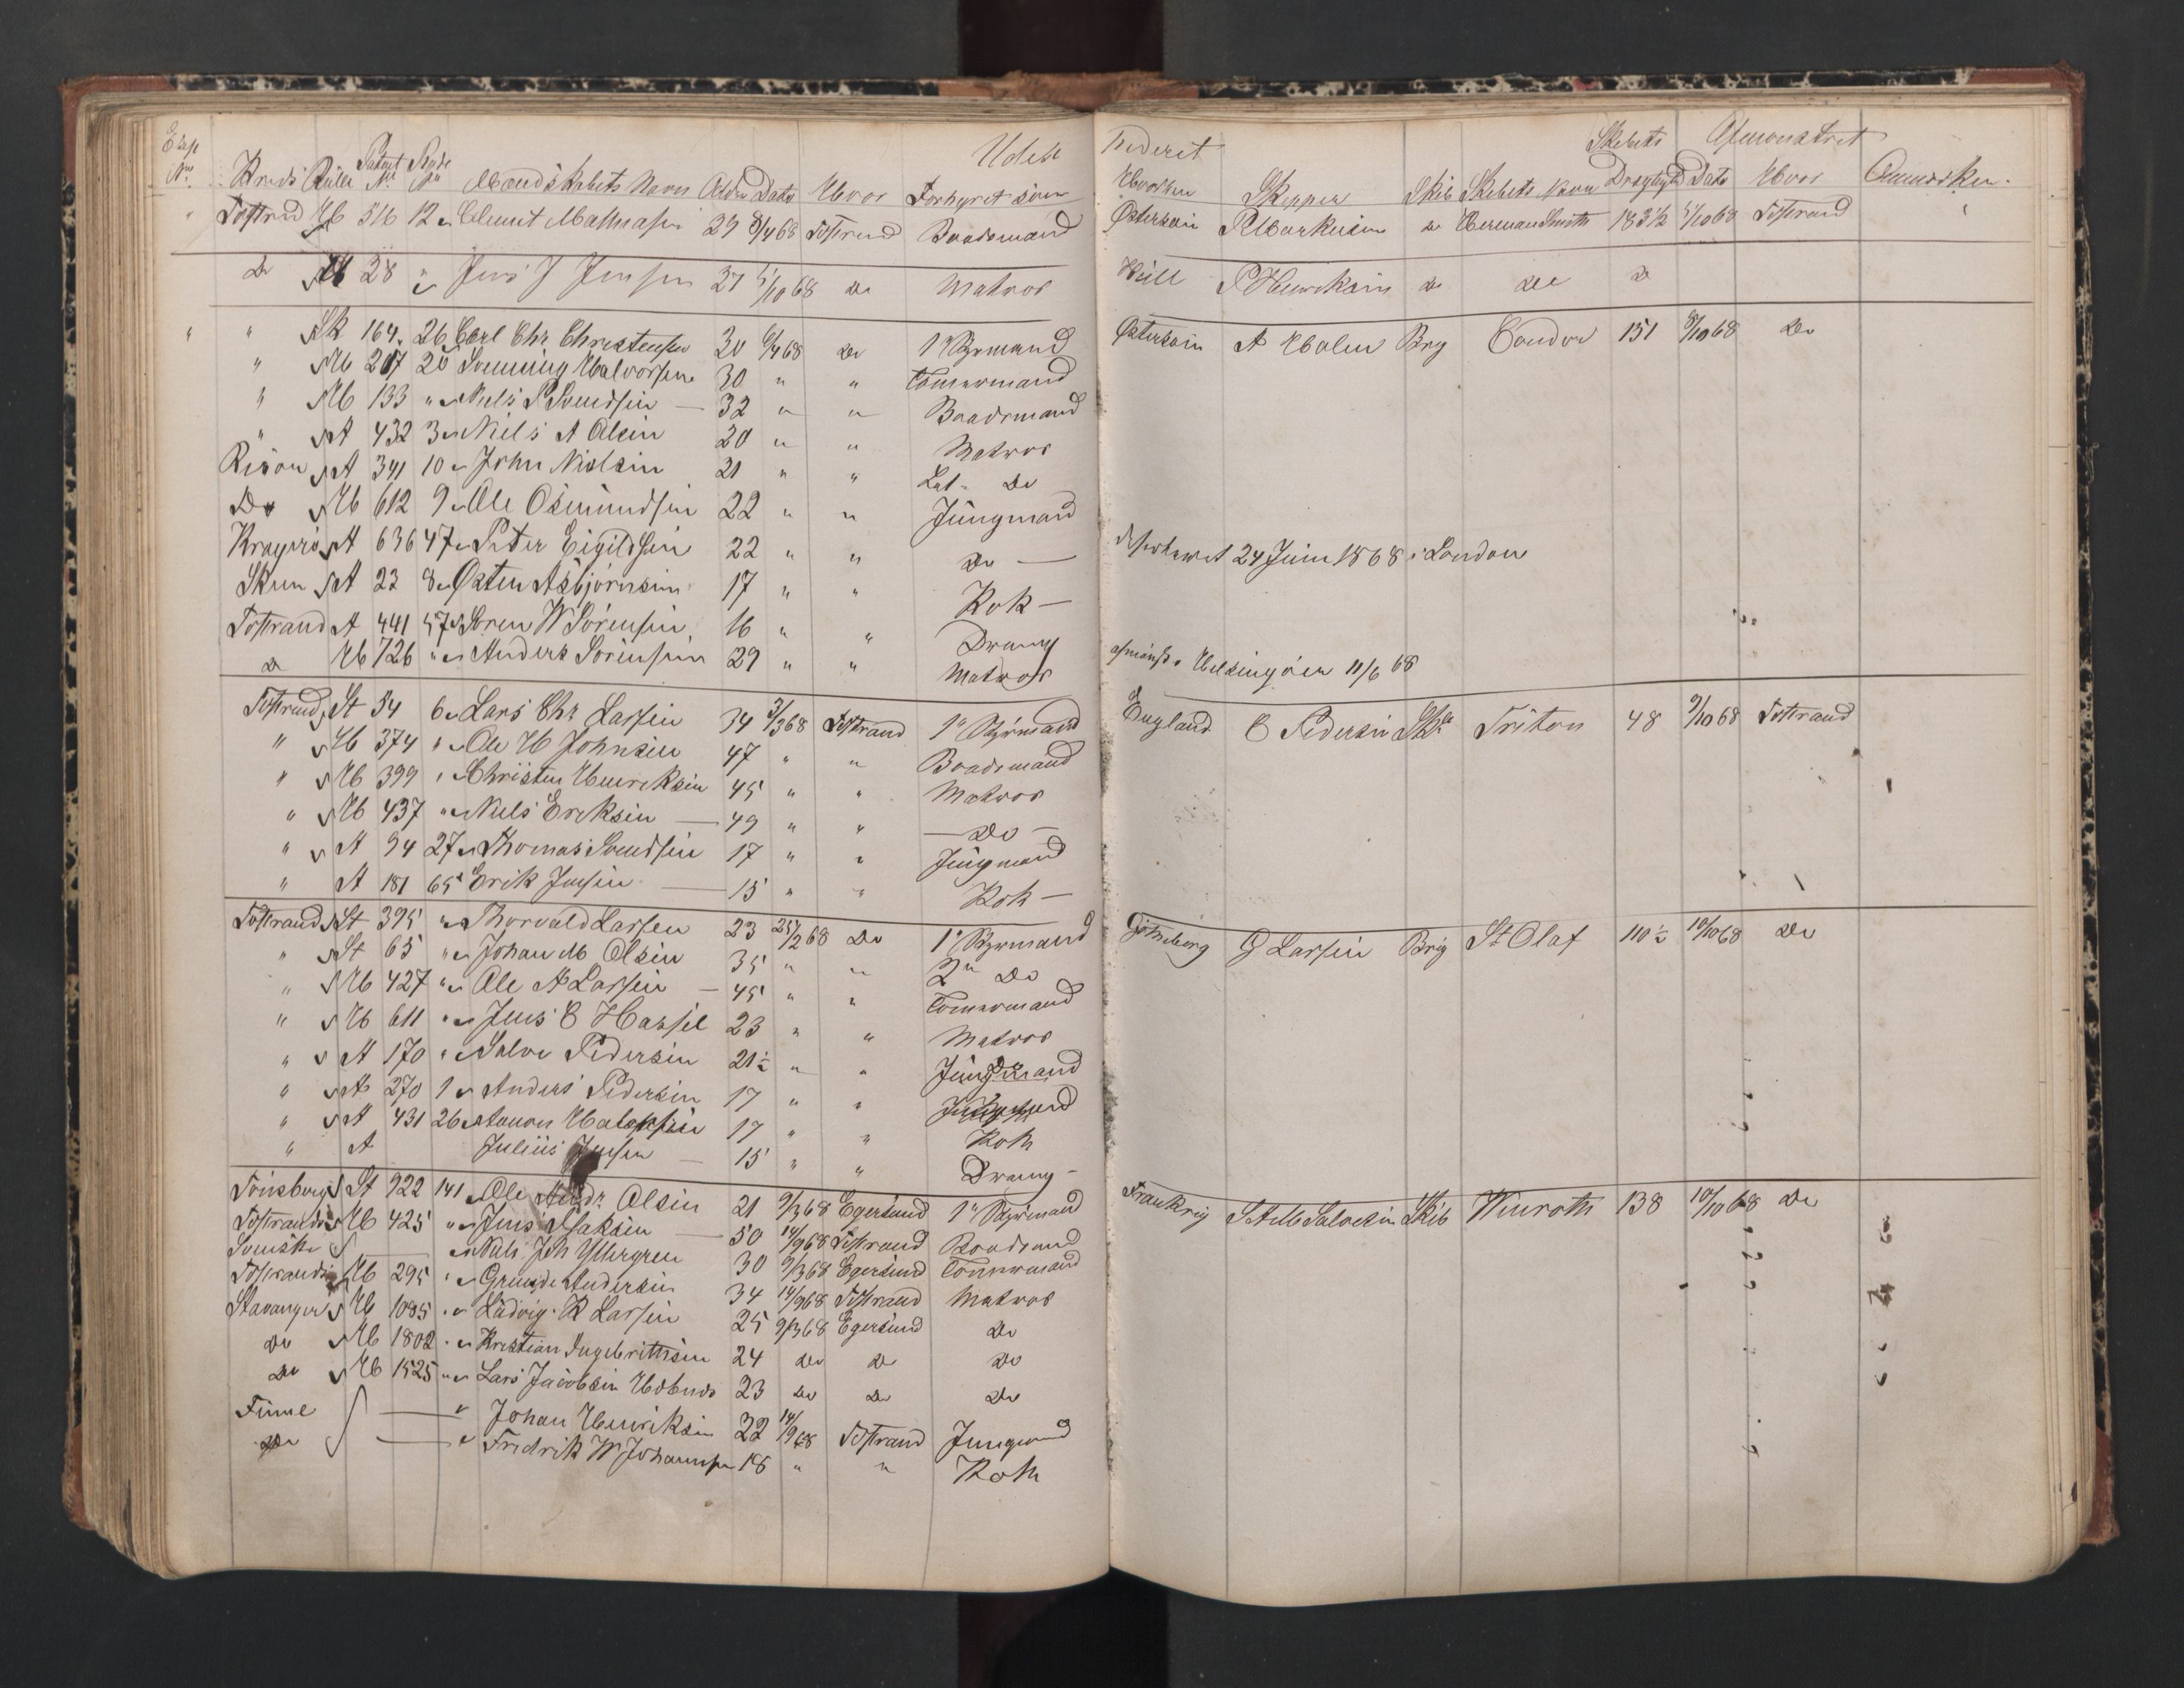 Udek tederet
Exp Nr Kreds Rulle Patent Nr Rode Nr Mandskabets Navn Alder Dato Hvor Forhyret som Hvorhen Skipper Skib Skibets Navn Skibets Drægtighed Afmonstret Dato Hvor Anmærkn.
" Tvstrand Hb 516 12 Clemet Mathiasen 29 8/4 68 Tvstrand Baadsmand Østersøin P Markusen do Herman Smith 183½ 5/10 68 Tvstrand
do Hb 28 " Jens J Jensen 27 5/10 68 do Matros Hull P Henriksen do do do
" " Sk 164 26 Carl Chr Christensen 30 6/4 68 do 1ste Styrmand Østersøin A Holm Brig Condor 151 8/10 68 do
" Hb 217 20 Svenning Halvorsen 30 " " Tømmermand
" Hb 133 " Niels P Svendsen — 32 " " Baadsmand
" A 432 3 Niels A Olsen 20 " " Matros
Risøer A 341 10 John Nielsen 21 " " Let. do
Do Hb 612 9 Ole Osmundsen 22 " " Jungmand
Kragerø A 636 47 Peder Eigildsen 22 " " do — deserteret 24 Juni 1868 i London
Skien A 23 8 Østen Asbjørnsen 17 " " Kok —
Tvstrand A 441 57 Søren W Sørensen 16 " " Dreng
do Hb 726 " Anders Sørensen 29 " " Matros afmønst. Helsingøer 11/6 68
Tvstrand St 54 6 Lars Chr Larsen 34 3/3 68 Tvstrand 1ste Styrmand England C Pedersen Sk Triton 48 9/10 68 Tvstrand
" Hb 374 " Ole H Johnsen 47 " " Baadsmand
" Hb 399 " Christen Henriksen 45 " " Matros
" Hb 437 " Niels Eriksen — 49 " " — do —
" A 94 27 Thomas Svendsen 17 " " Jungmand
" A 181 65 Erik Jensen — 15 " " Kok —
Tvstrand St 395 " Thorvald Larsen 23 25/2 68 Do 1ste Styrmand Gøteborg G Larsen Brig St Olaf 110½ 10/10 68 do
" St 65 " Johan M Olsen 35 " " 2den Do
" Hb 427 " Ole A Larsen — 45 " " Tømmermand
" Hb 611 " Jens C Hassel 23 " " Matros
" A 170 " Salve Pedersen 21½ " " Jungmand
" A 270 1 Anders Pedersen 17 " " Jungmand
" A 431 26 Aanon Halvorsen 17 " " Kok
" A Julius Jensen — 15 " " Dreng —
Tønsberg St 922 141 Ole Andr. Olsen 21 9/3 68 Egersund 1ste Styrmand Frankrig S A M Salvesen Skib Winroth 138 10/10 68 do
Tvstrand Hb 425 " Jens Isaksen — 50 14/9 68 Tvstrand Baadsmand
Svensk — Niels Joh Yttergren 30 9/3 68 Egersund Tømmermand
Tvstrand Hb 295 " Grunde Andersen 34 14/9 68 Tvstrand Matros
Stavanger Hb 1095 " Ludvig R Larsen 25 9/3 68 Egersund do
do Hb 1802 " Kristian Ingebrittsen 24 do do do
do Hb 1525 " Lars Jacobsen 23 do do do
Finne — Johan Henriksen 22 14/9 68 Tvstrand Jungmand
do — Fredrik W Johannsen 18 " " Kok